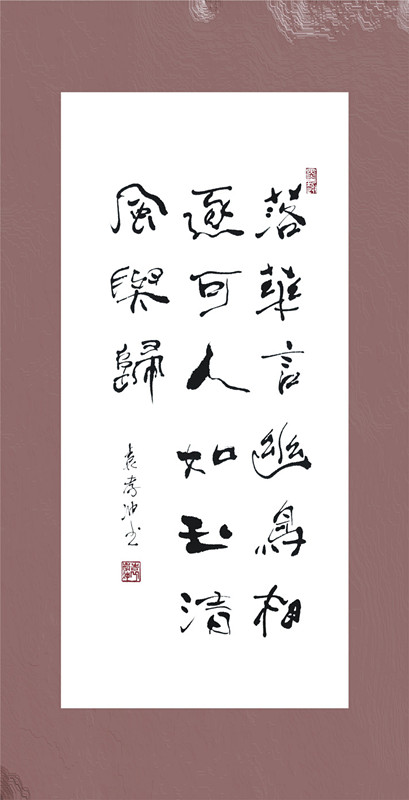 落華言幽鳥相
逐可人如玉清
風與歸
袁